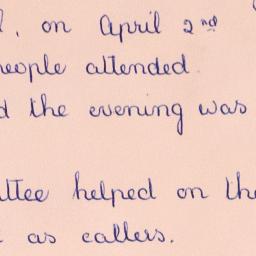 , on April 2nd
people attended.
the evening was
helped on the
as callers.